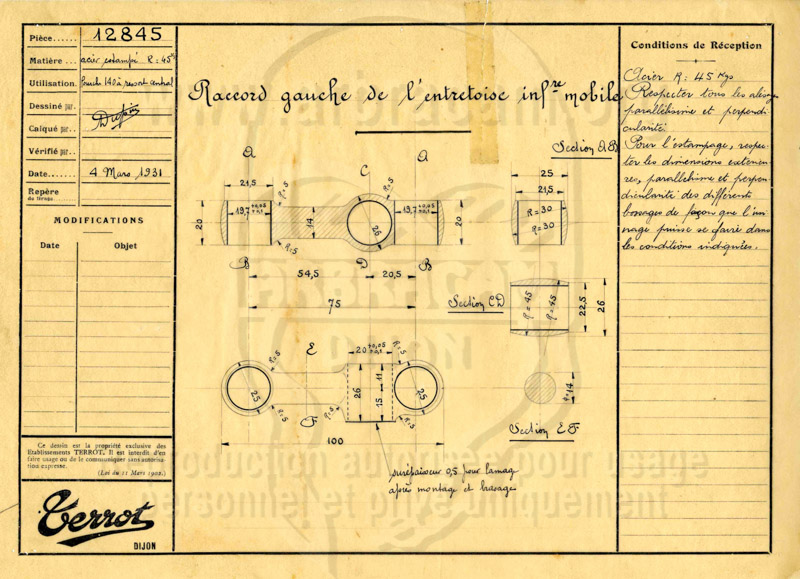 Pièce...... 12845
Matière.... acier estampé R = 45 K
Utilisation. fourche 140 à ressort central
Dessiné par..
Calqué par..
Vérifié par..
Date....... 4 Mars 1931
Repère
du tirage
MODIFICATIONS
Date Objet
Ce dessin est la propriété exclusive des
Etablissements TERROT. Il est interdit d'en
faire usage ou de le communiquer sans autorisa-
tion expresse.
(Loi du 11 Mars 1902.)
Terrot
DIJON
Raccord gauche de l'entretoise inf.re mobile
A C A
21,5 R=5 R=5
20 19,7 +0,05 +0,1 14 26 19,7 +0,05 +0,1 20
R=5
B D B
54,5 20,5
75
Section AB
25
21,5
R=30
R=30
Section CD
R=45 R=45 22,5 26
E 20 +0,05 +0,1
R=5 R=5
25 26 11 15 25
R=5 F R=5 R=5
100
14
Section EF
surépaisseur 0,5 pour lamag
après montage et brasage
Conditions de Réception
Acier R : 45 Kgs
Respecter tous les alésag
parallélisme et perpendi-
cularité.
Pour l'estampage, respec-
ter les dimensions extérieu-
res, parallélisme et perpen-
dicularité des différents
bossages de façon que l'usi-
nage puisse se faire dans
les conditions indiquées.
DIJON
reproduction autorisée pour usage
personnel et privé uniquement